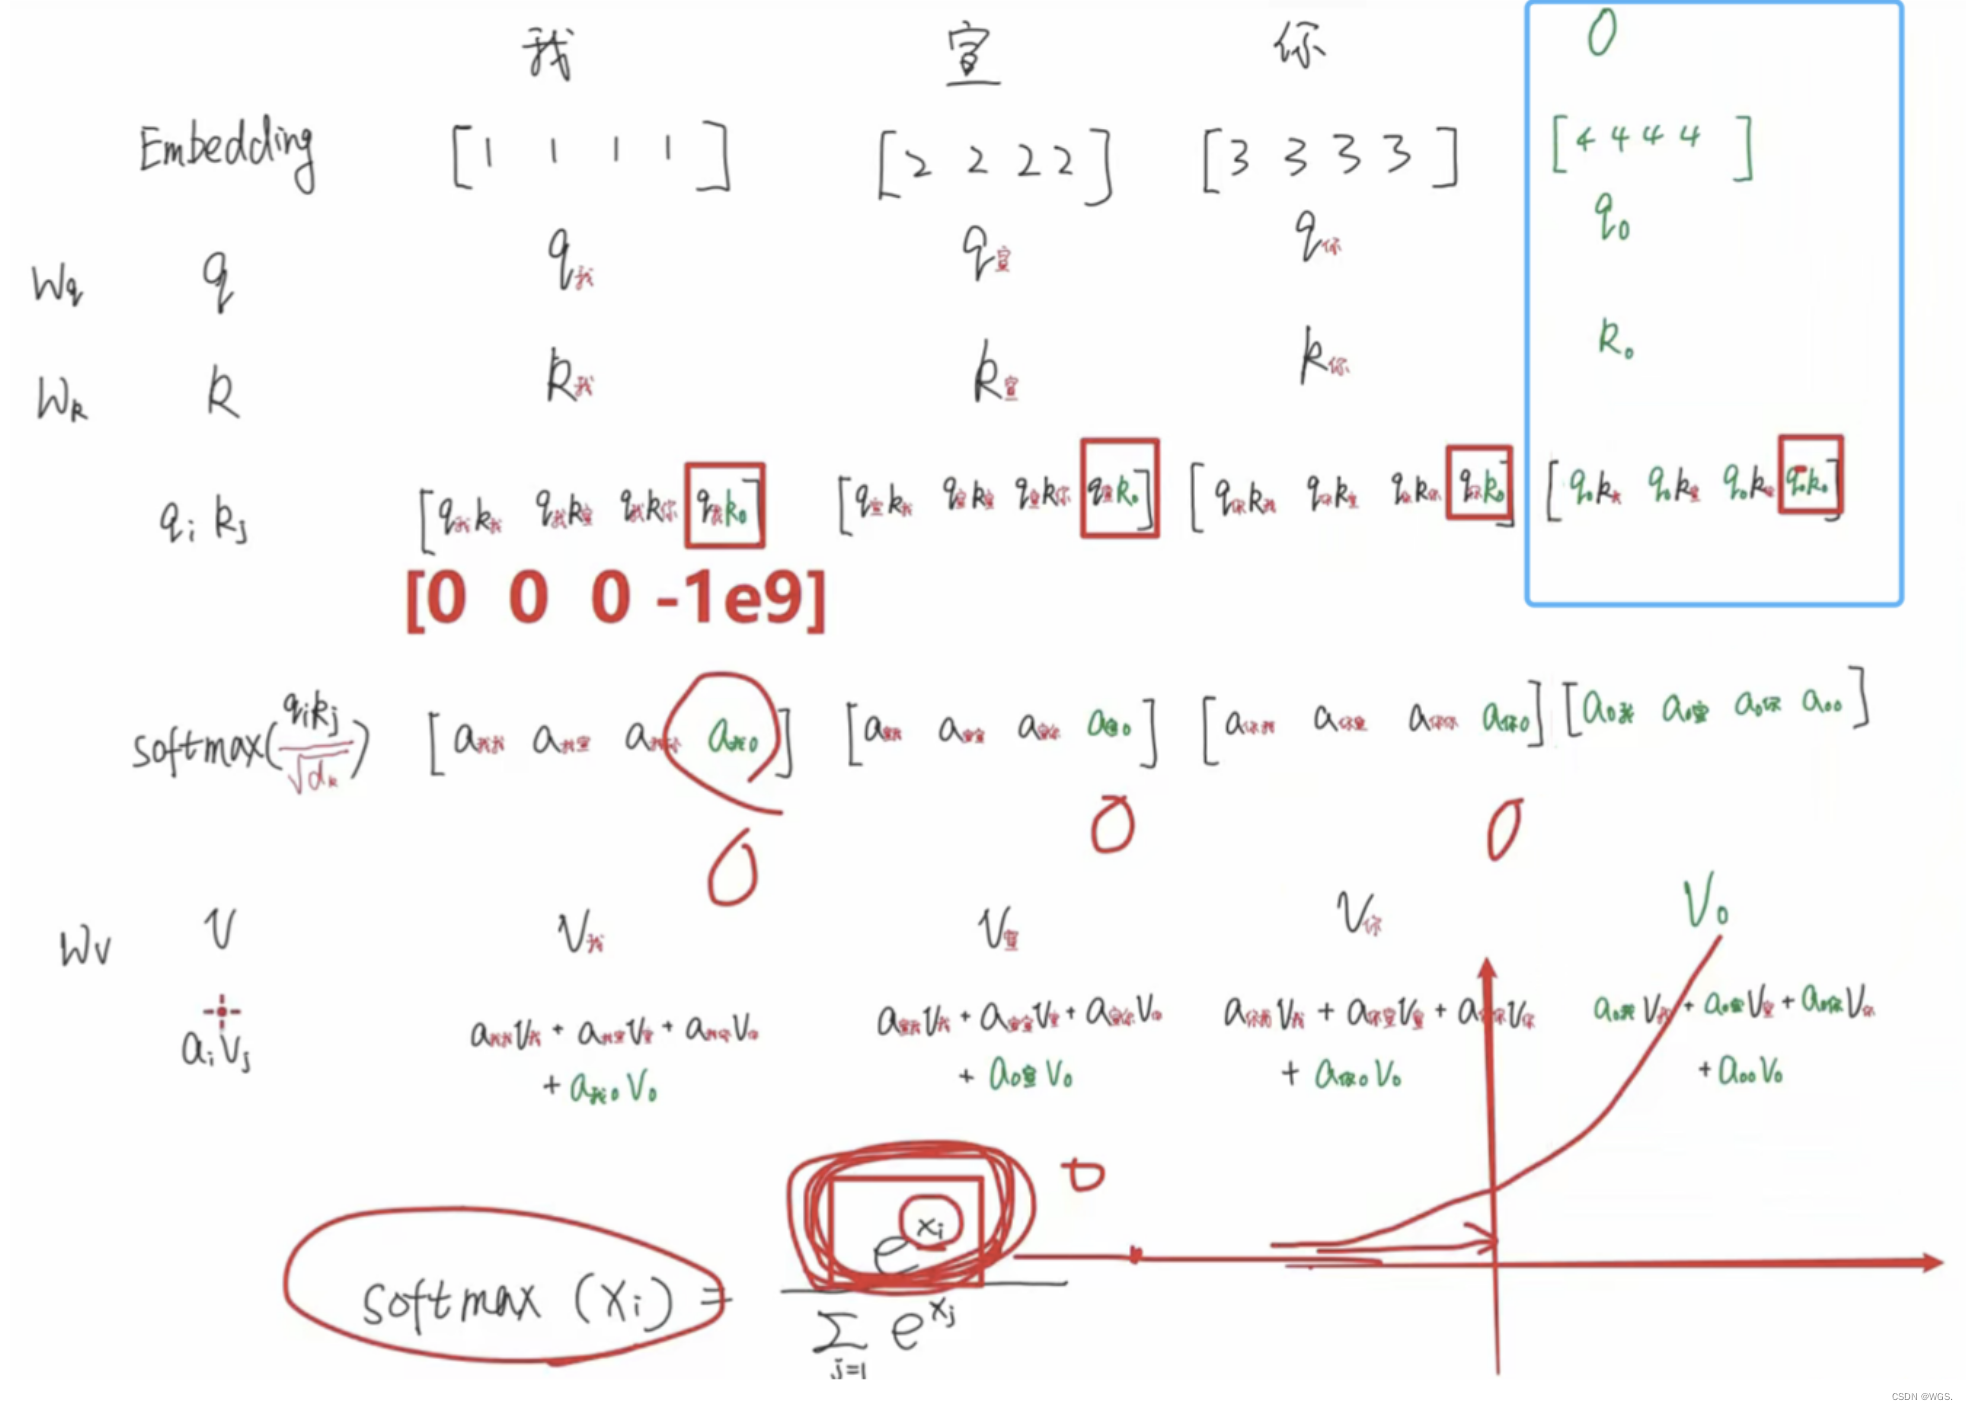 我 宣 你 0
Embedding [1 1 1 1] [2 2 2 2] [3 3 3 3] [4 4 4 4]
Wq q q我 q宣 q你 q0
Wk k k我 k宣 k你 k0
qi kj [q我k我 q我k宣 q我k你 q我k0] [q宣k我 q宣k宣 q宣k你 q宣k0] [q你k我 q你k宣 q你k你 q你k0] [q0k我 q0k宣 q0k你 q0k0]
[0 0 0 -1e9]
softmax(qikj/√dk) [a我我 a我宣 a我你 a我0] [a宣我 a宣宣 a宣你 a宣0] [a你我 a你宣 a你你 a你0] [a0我 a0宣 a0你 a00]
0 0 0
Wv V V我 V宣 V你 V0
aivj a我我V我 + a我宣V宣 + a我你V你 a宣我V我 + a宣宣V宣 + a宣你V你 a你我V我 + a你宣V宣 + a你你V你 a0我V我 + a0宣V宣 + a0你V你
+ a我0V0 + a0宣V0 + a你0V0 + a00V0
0
softmax (xi) = e^xi / Σj=1 e^xj
CSDN @WGS.